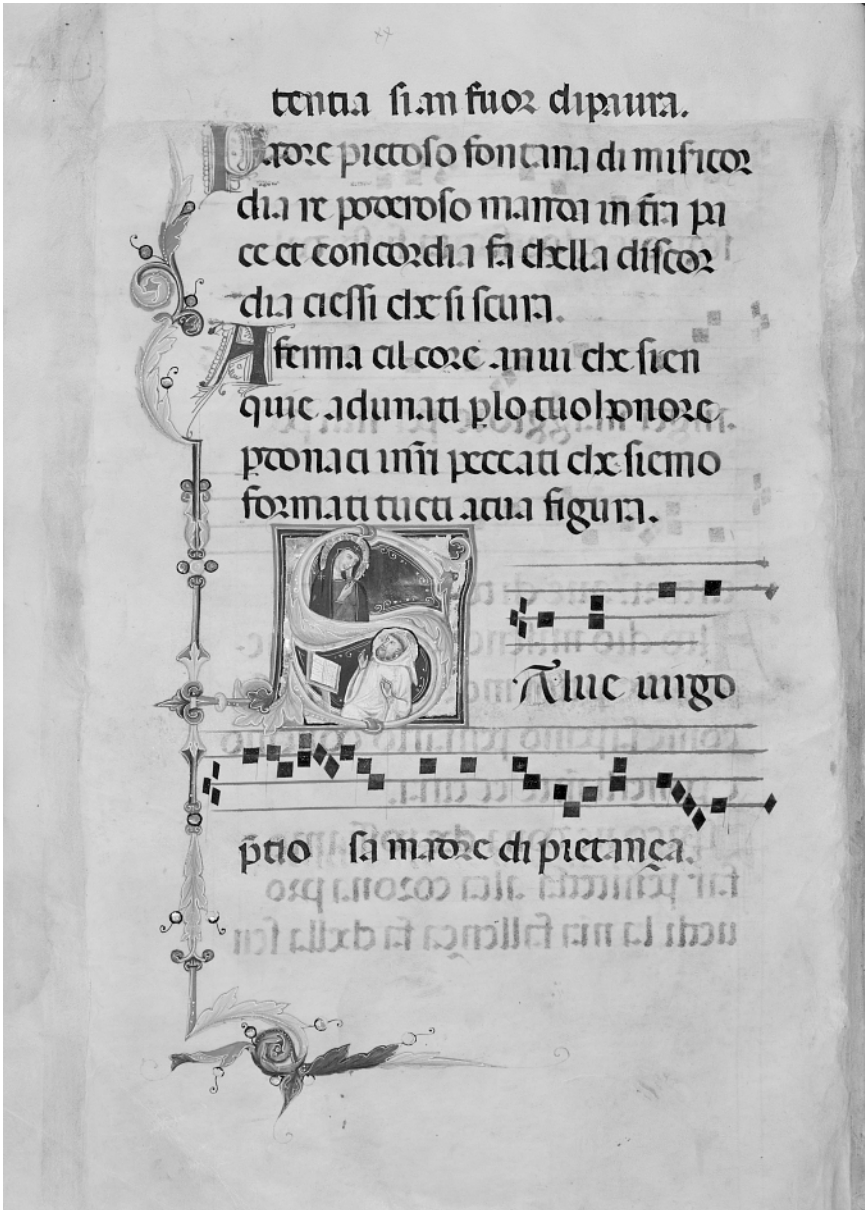 tentia sian fuor dipaura.
Patre pietoso fontana di misicor
dia re poderoso manda in tr̄a pa
ce et concordia fa chella discor
dia ciessi che si scura.
A ferma cil core anui che sien
quie adunati ꝑlo tuo honore
ꝑdonaci inr̄i peccati che siemo
formati tucti atua figura.
SAlue uirgo
p̄tio sa madre di pietança.